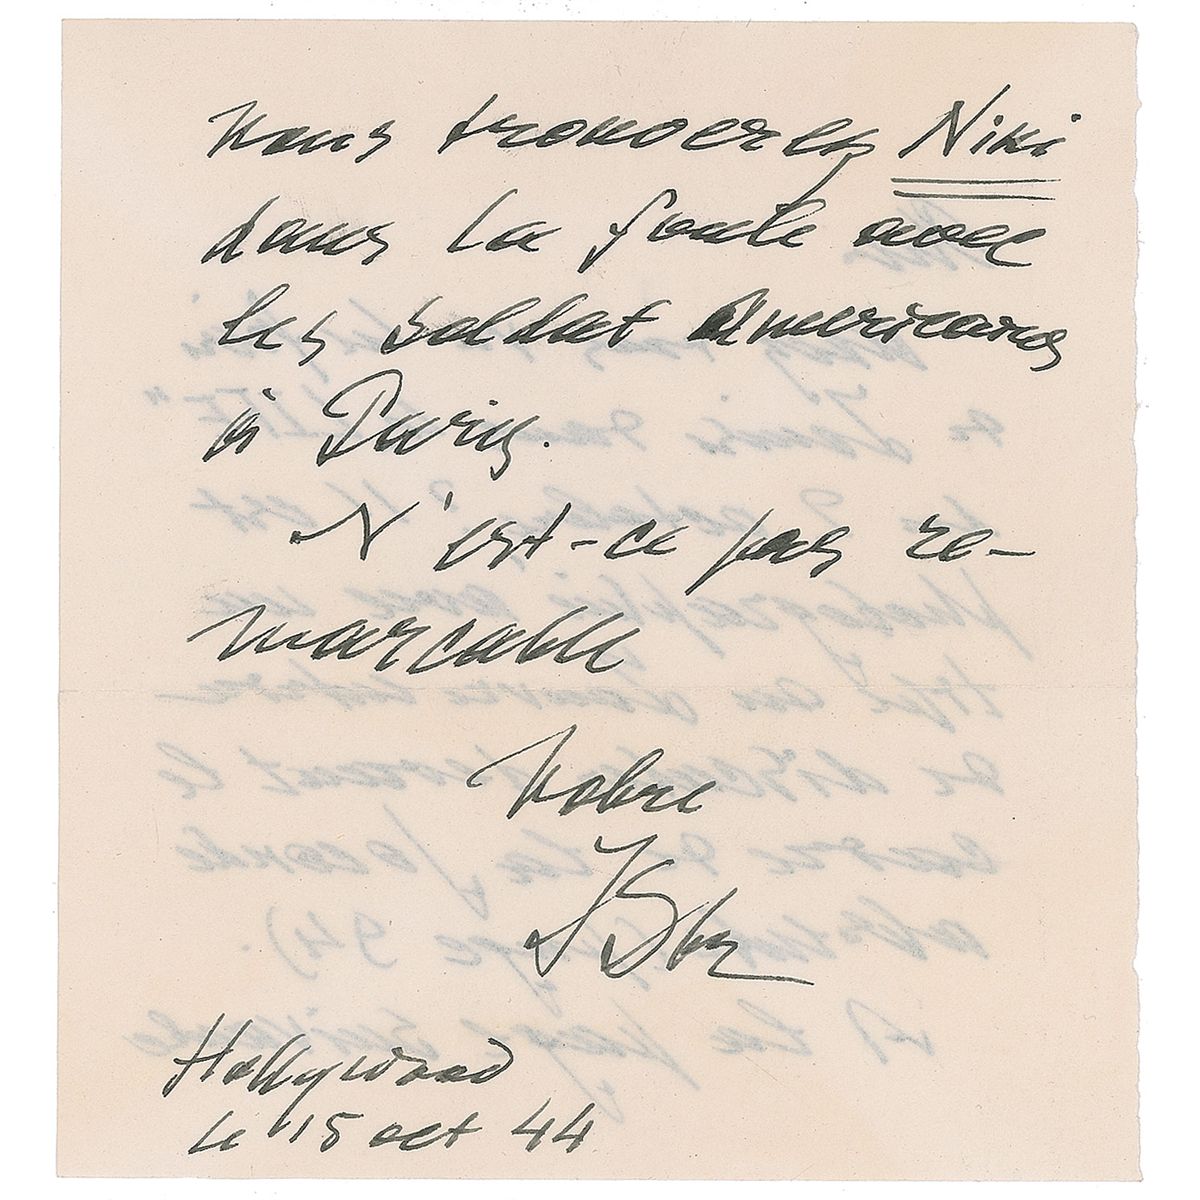 vous trouverez Niki
dans la foule avec
les soldat Americains
à Paris.
N'est-ce pas re-
marcable
Votre
IStr
Hollywood
le 15 oct 44